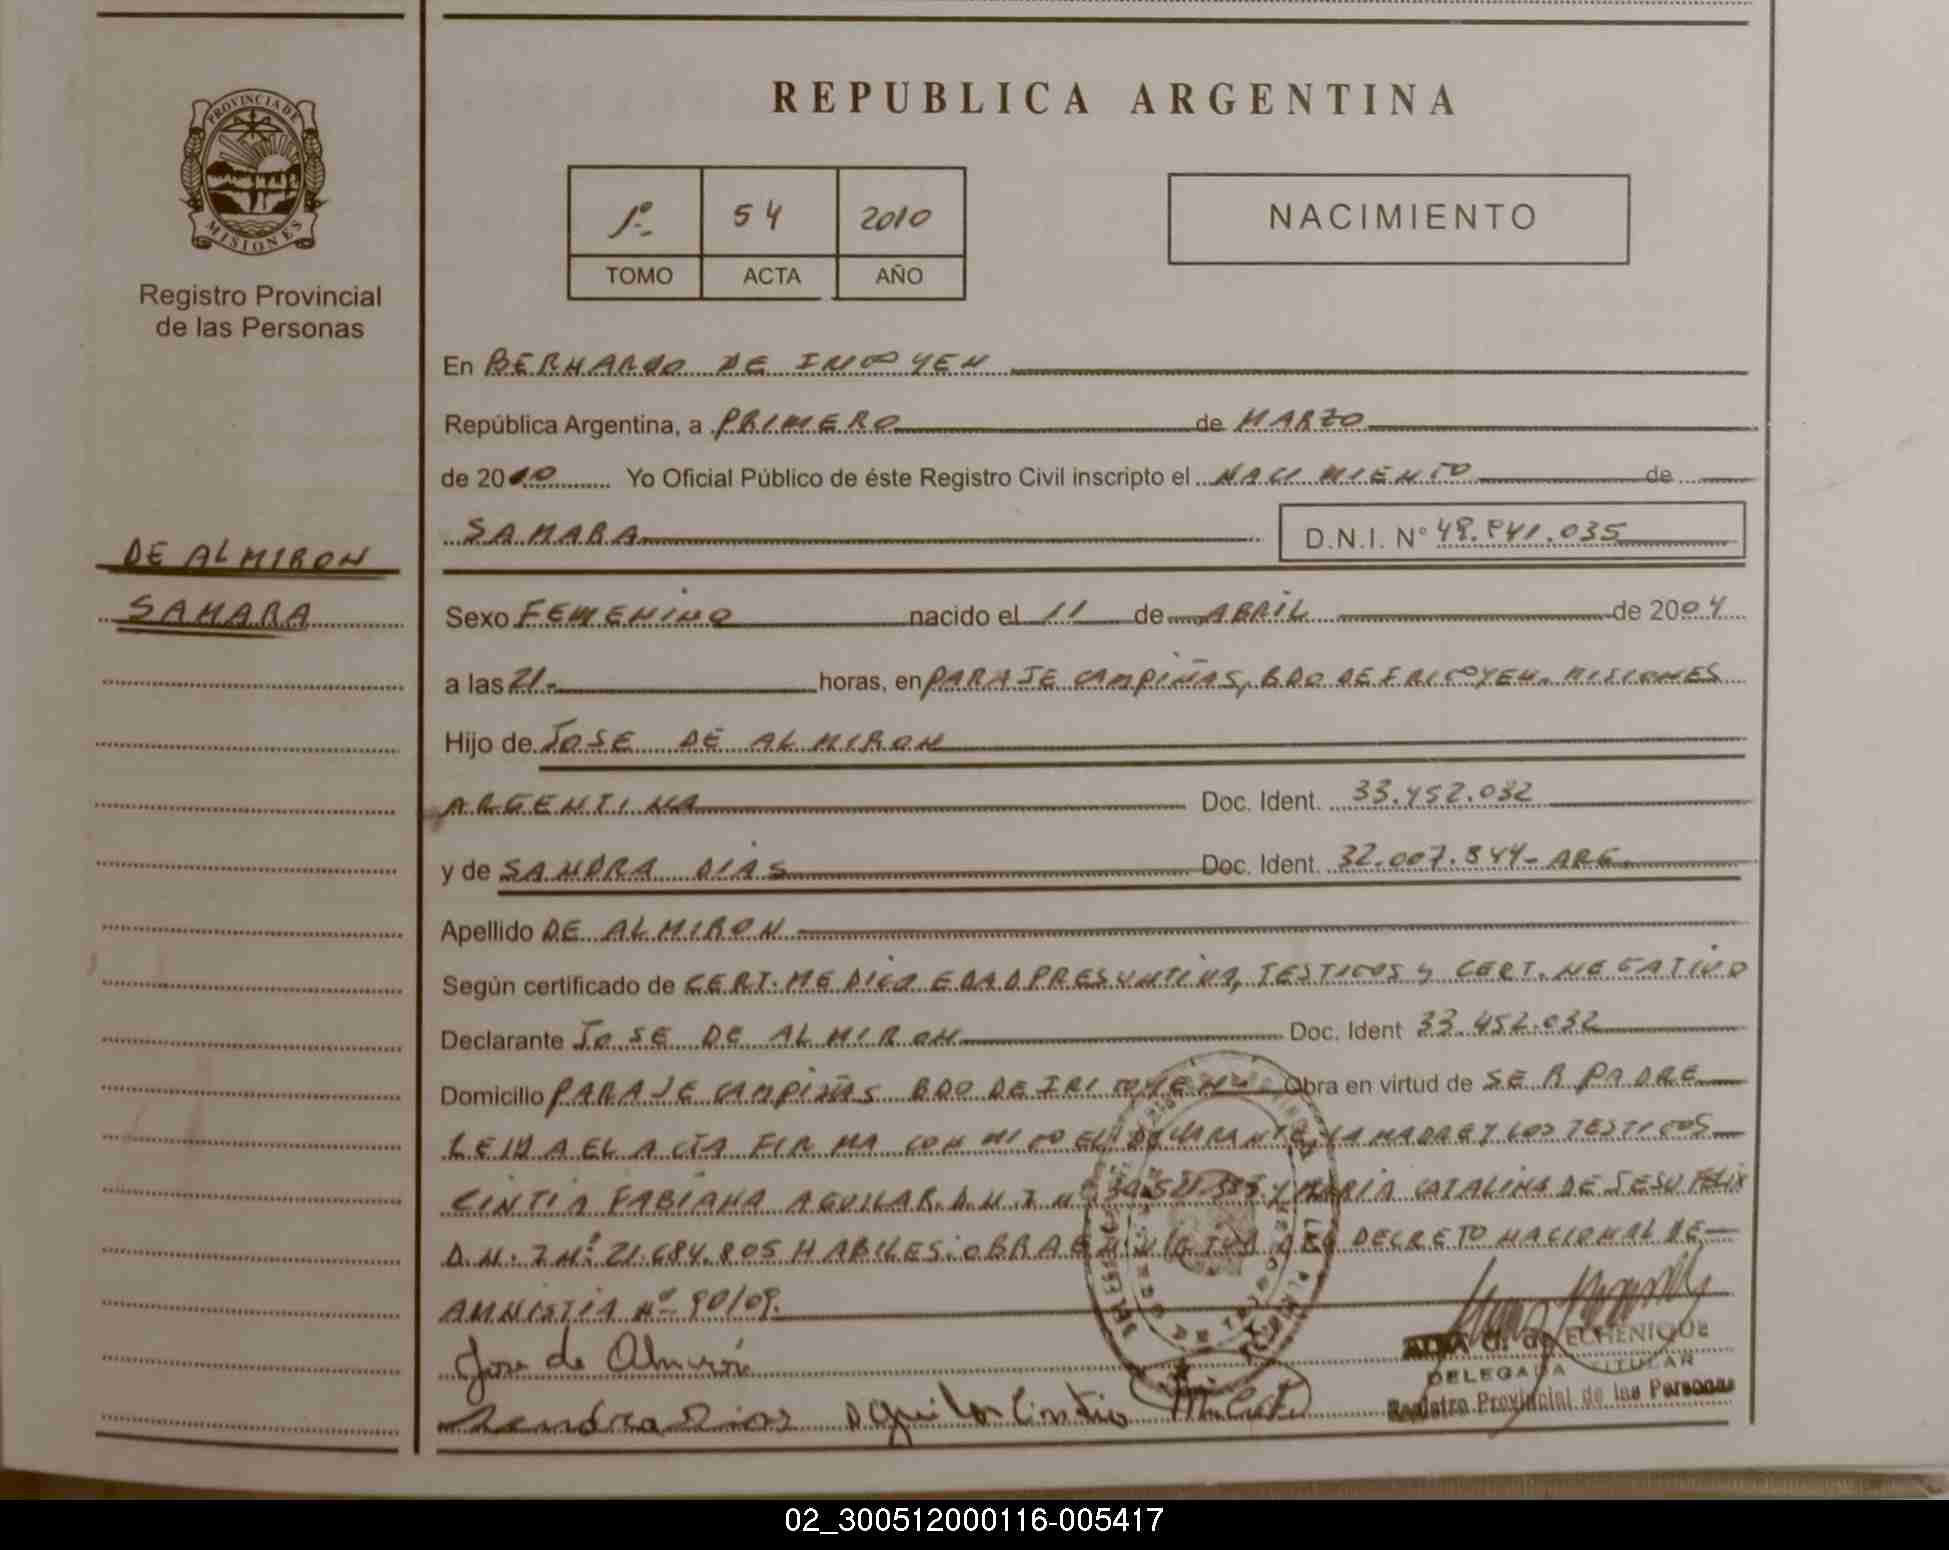 PROVINCIA DE
MISIONES
Registro Provincial
de las Personas
DE ALMIRON
SAMARA
REPUBLICA ARGENTINA
1º 54 2010
TOMO ACTA AÑO
NACIMIENTO
En BERNARDO DE IRIGOYEN
República Argentina, a PRIMERO de MARZO
de 2010 Yo Oficial Público de éste Registro Civil inscripto el NACIMIENTO de
SAMARA D.N.I. Nº 48.841.035
Sexo FEMENINO nacido el 11 de ABRIL de 2004
a las 21.- horas, en PARAJE CAMPIÑAS, BDO DE IRIGOYEN. MISIONES
Hijo de JOSE DE ALMIRON
ARGENTINA Doc. Ident. 33.452.032
y de SANDRA DIAS Doc. Ident. 32.007.844- ARG.
Apellido DE ALMIRON
Según certificado de CERT. MEDICO EDAD PRESUNTIVA, TESTIGOS y CERT. NEGATIVO
Declarante JOSE DE ALMIRON Doc. Ident 33.452.032
Domicilio PARAJE CAMPIÑAS BDO DE IRIGOYEN Obra en virtud de SER PADRE
LEIDA EL ACTA FIRMA CONMIGO EL DECLARANTE, LA MADRE Y LOS TESTIGOS
CINTIA FABIANA AGUILAR D.N.I Nº Y MARIA CATALINA DE JESU FELIX
D.N.I Nº 21.684.805 HABILES. OBRA EN VIRTUD DEL DECRETO NACIONAL DE
AMNISTIA Nº 90/09.
Jose de Almirón
Sandra Dias Aguilar Cintia
ALBA G. de ECHENIQUE
DELEGADA TITULAR
Registro Provincial de las Personas
02_300512000116-005417